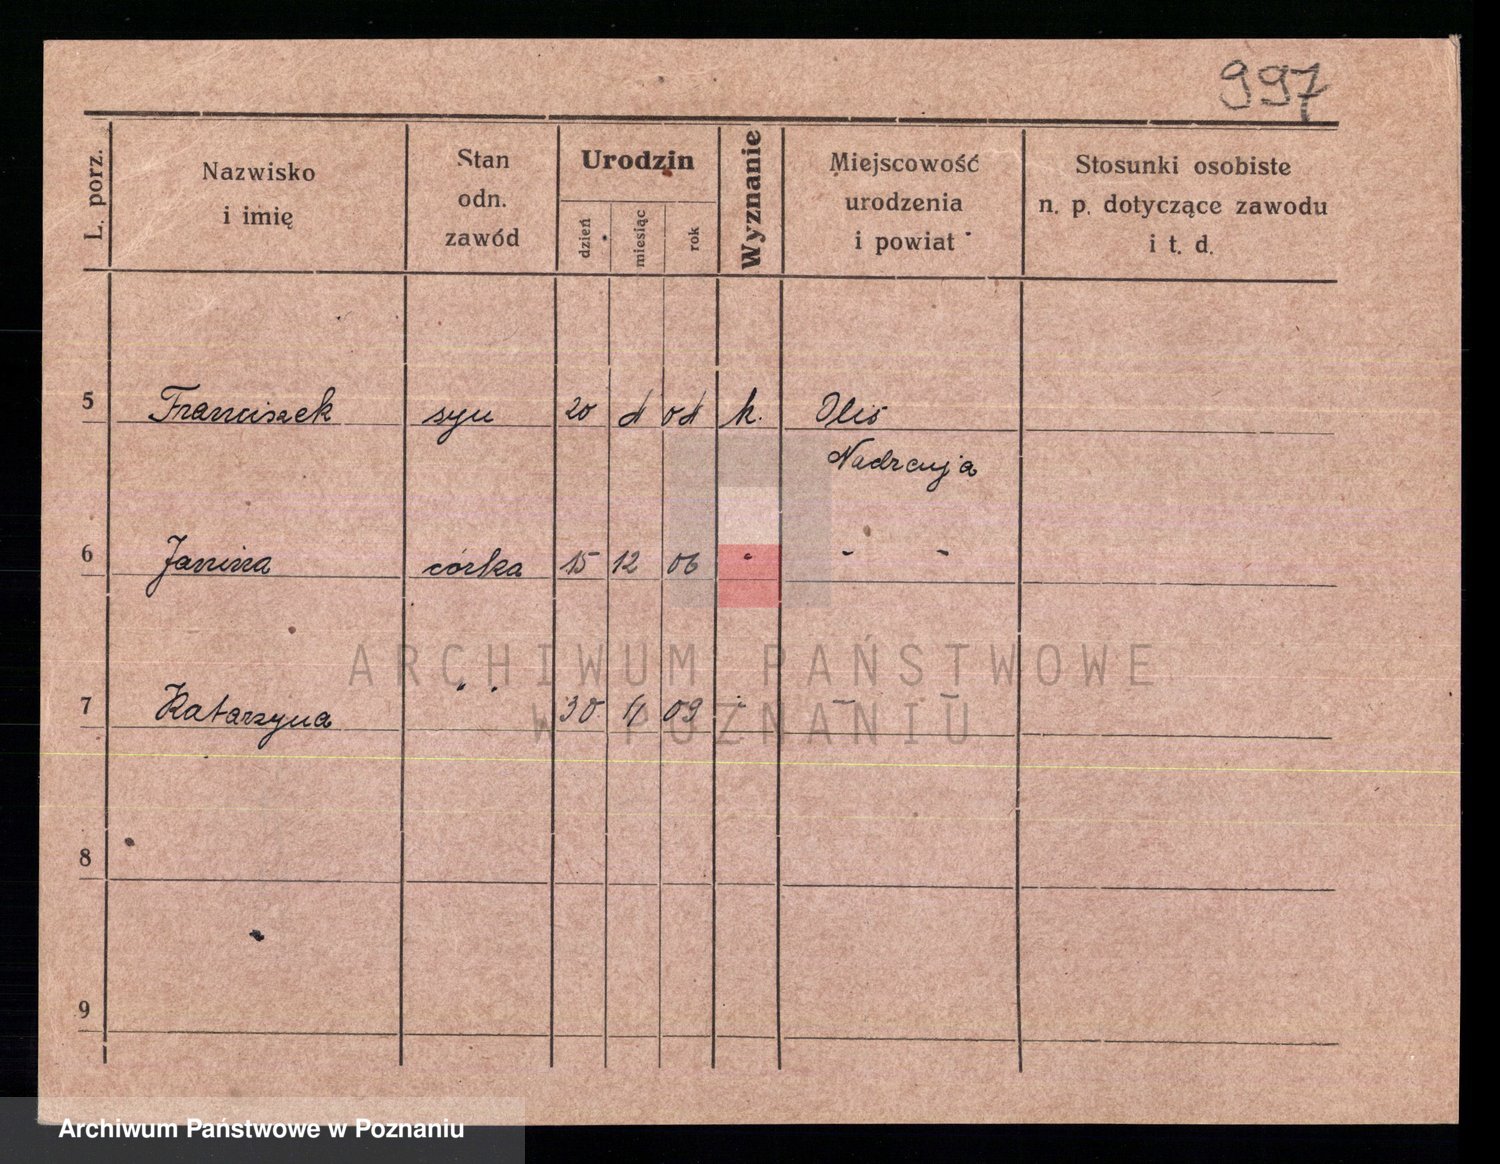 997
L. porz.
Nazwisko
i imię
Stan
odn.
zawód
Urodzin
dzień
miesiąc
rok
Wyznanie
Miejscowość
urodzenia
i powiat
Stosunki osobiste
n. p. dotyczące zawodu
i t. d.
5 Franciszek syn 20 4 04 k.
6 Janina córka 15 12 06 " " "
7 Katarzyna " " 30 09 " "
8
9
ARCHIWUM PAŃSTWOWE
W POZNANIU
Archiwum Państwowe w Poznaniu